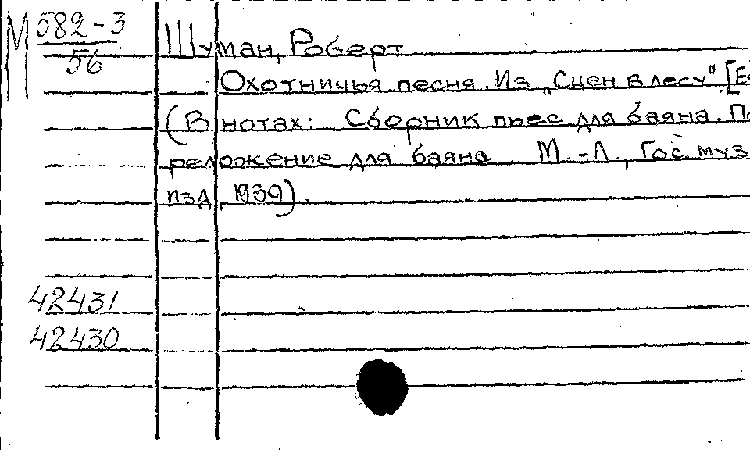 М 582-3
56
Шуман, Роберт
Охотничья песня. Из "Сцен в лесу"
(В нотах: Сборник пьес для баяна. Пе
реложение для баяна М.-Л, Гос. муз
изд, 1939).
42431
42430